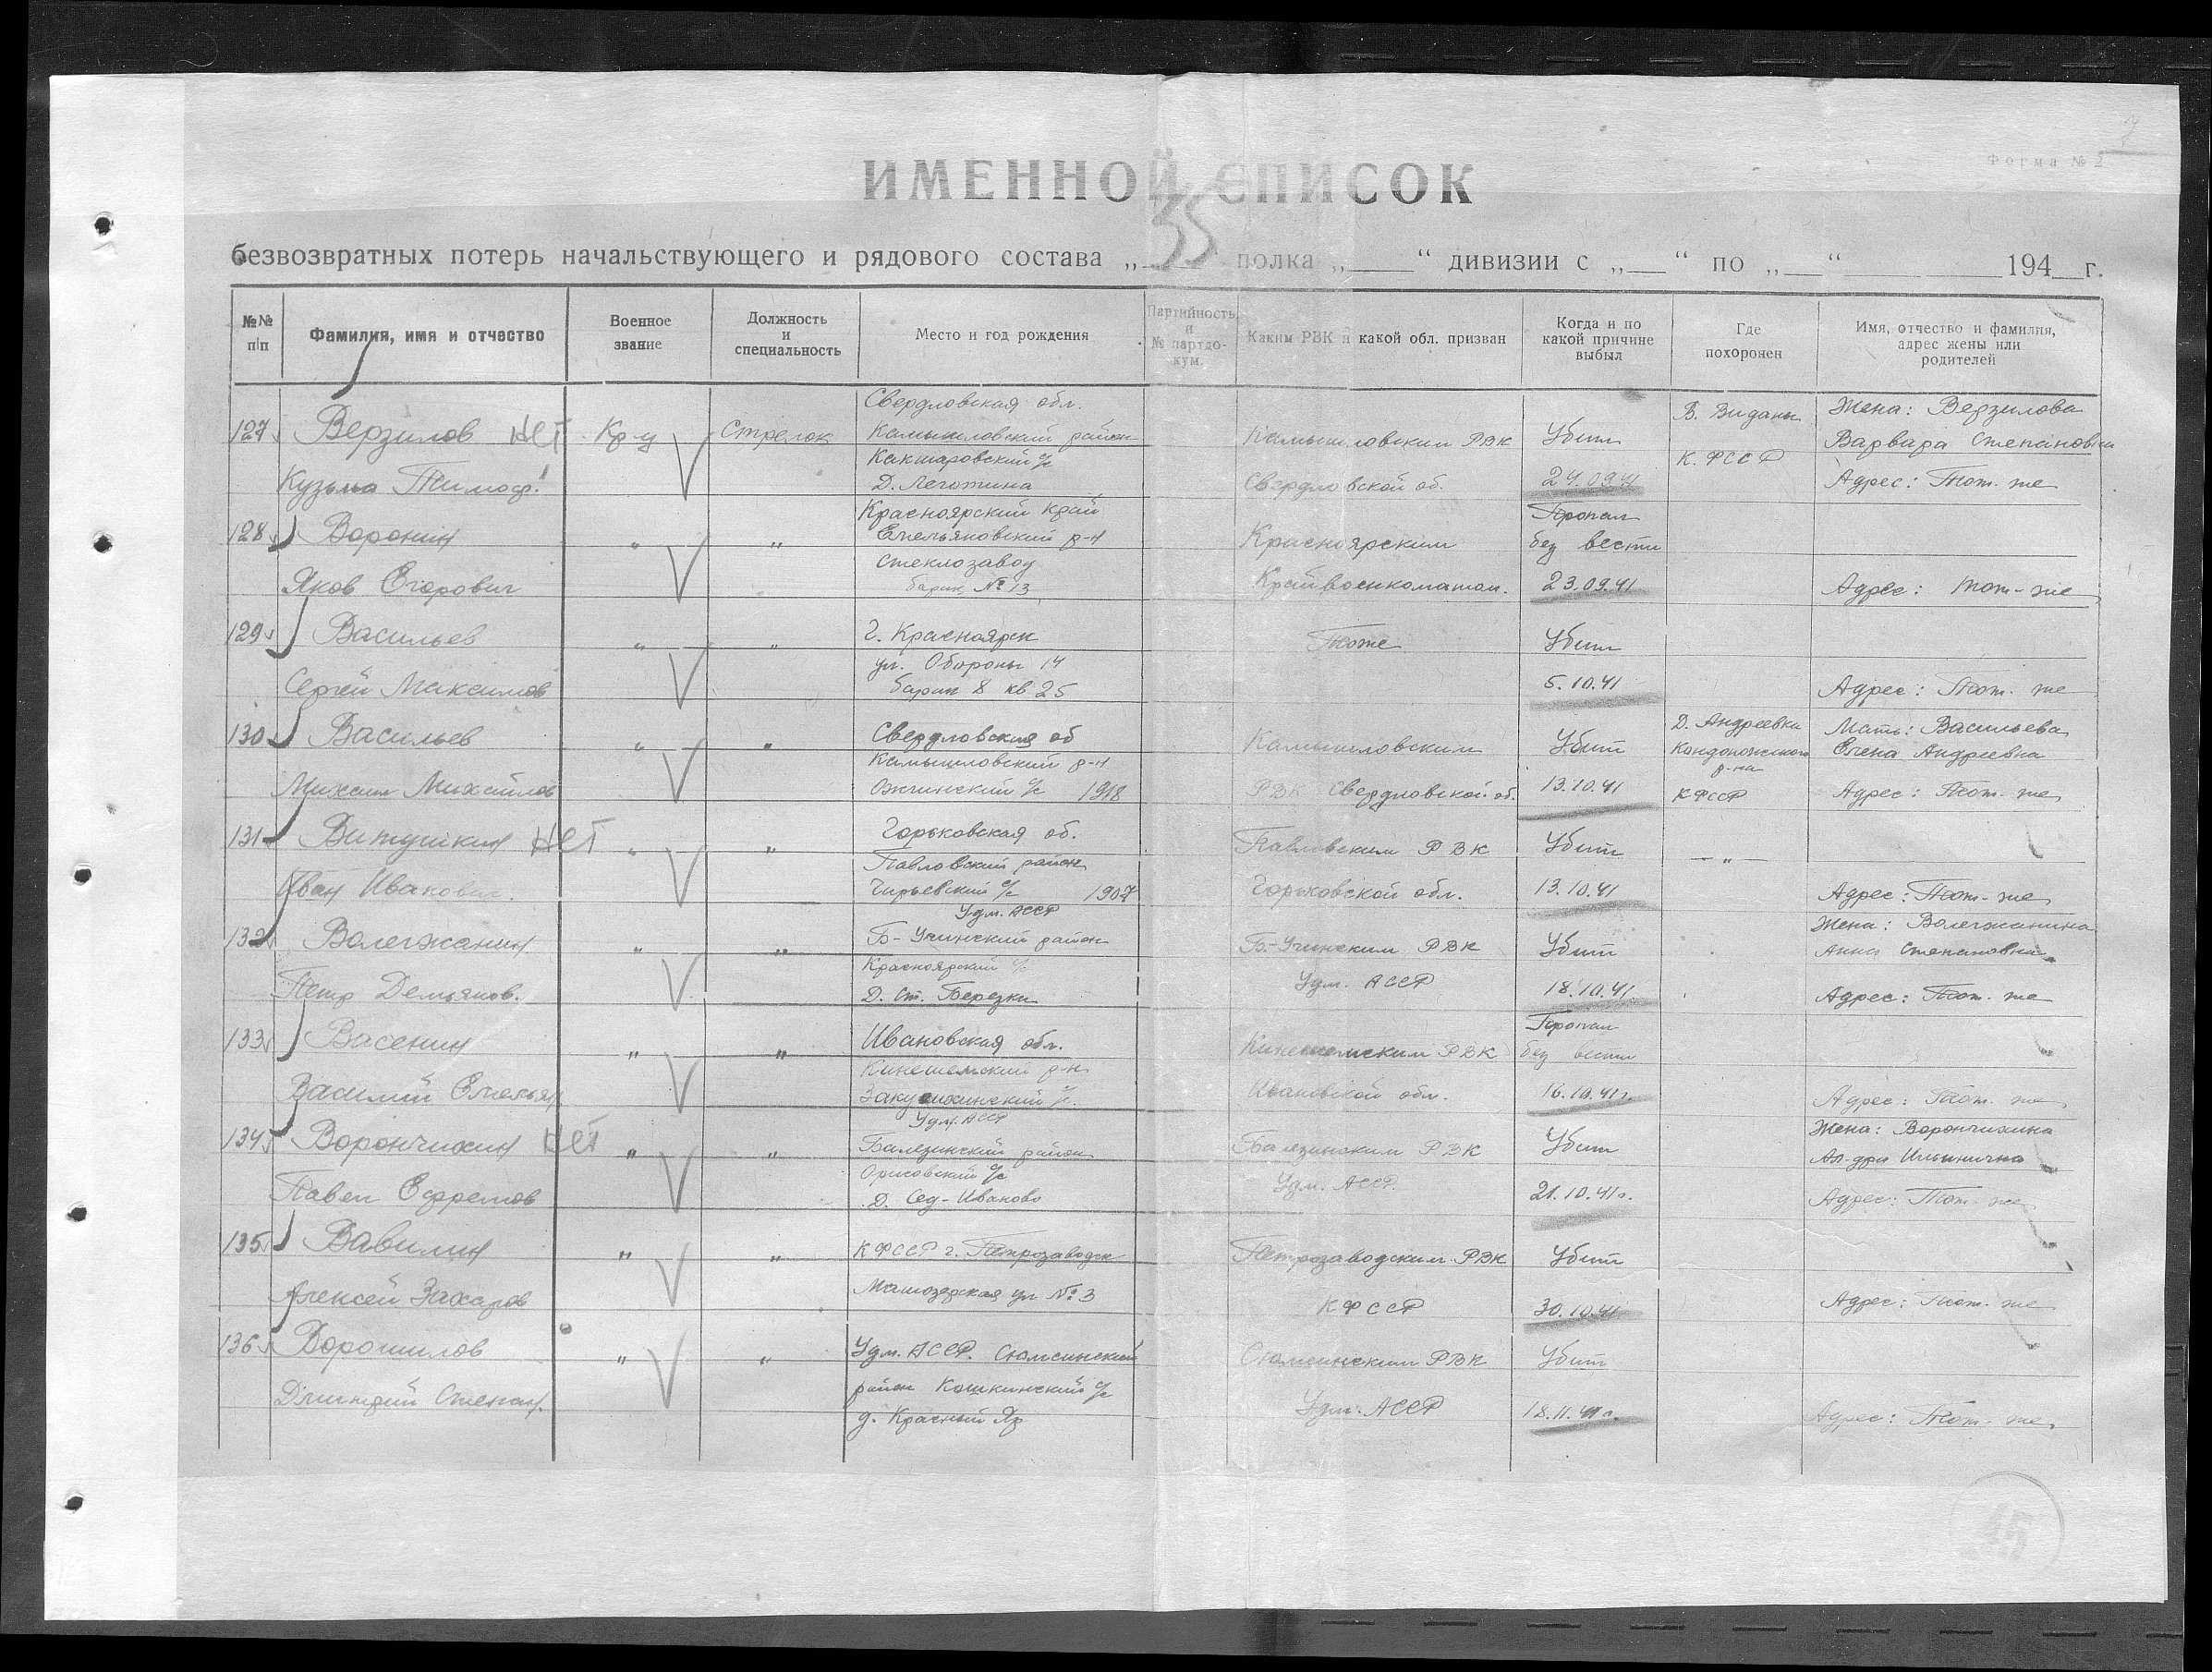 Форма № 2
ИМЕННОЙ СПИСОК
безвозвратных потерь начальствующего и рядового состава „ 35 полка „ “ дивизии с „ “ по „ “ 194 г.
№№ п/п
Фамилия, имя и отчество
Военное звание
Должность и специальность
Место и год рождения
Партийность и № партдокум.
Каким РВК и какой обл. призван
Когда и по какой причине выбыл
Где похоронен
Имя, отчество и фамилия, адрес жены или родителей
Свердловская обл. В. Виданы Жена: Верзилова
127 Верзилов нет Кр-ц Стрелок Камышловский район Камышловским РВК Убит Варвара Степановна
Какшаровский с/с К.ФССР
Кузьма Тимоф. Д. Леготина Свердловской об. 24.09.41 Адрес: Том-же
Красноярский край Пропал
128 Воронин „ „ Емельяновский р-н Красноярским без вести
Стеклозавод
Яков Егорович барак № 13 Крайвоенкоматом. 23.09.41 Адрес: Том-же
129 Васильев „ „ г. Красноярск Тоже Убит
ул. Обороны 14
Сергей Максимов барак 8 кв 25 5.10.41 Адрес: Том-же
130 Васильев „ „ Свердловская об Камышловским Убит Д. Андреевка Мать: Васильева
Камышловский р-н Кондопожского р-на Елена Андреевна
Михаил Михайлов с/с 1918 РВК Свердловской об. 13.10.41 КФССР Адрес: Том-же
131 Витушкин нет „ „ Горьковская об. Павловским РВК Убит — „
Павловский район
Иван Иванович. с/с 1907 Горьковской обл. 13.10.41 Адрес: Том-же
Удм. АССР Жена: Волегжанина
132 Волегжанин „ „ Б-Учинский район Б.-Учинским РВК Убит Анна Степановна
Красноярский с/с
Петр Демьянов. Д. Ст. Березки Удм. АССР 18.10.41 Адрес: Том-же
133 Васенин „ „ Ивановская обл. Кинешемским РВК Пропал без вести
Кинешемский р-н
Василий Емельян с/с. Ивановской обл. 16.10.41г. Адрес: Том-же
Удм. АССР Жена: Ворончихина
134 Ворончихин нет „ „ Балезинский район Балезинским РВК Убит Ал-дра Ильинична
Орисовский с/с
Павел Ефремов Д. Сед-Иваново Удм. АССР. 21.10.41г. Адрес: Том-же
135 Вавилин „ „ КФССР г. Петрозаводск Петрозаводским РВК Убит
Алексей Захаров ул № 3 КФССР 30.10.41 Адрес: Том-же
136 Ворошилов „ „ Удм. АССР. Сюмсинский Сюмсинским РВК Убит
район Кошкинский с/с
Дмитрий Степан. д. Красный Яр Удм. АССР 18.11.41г. Адрес: Том-же